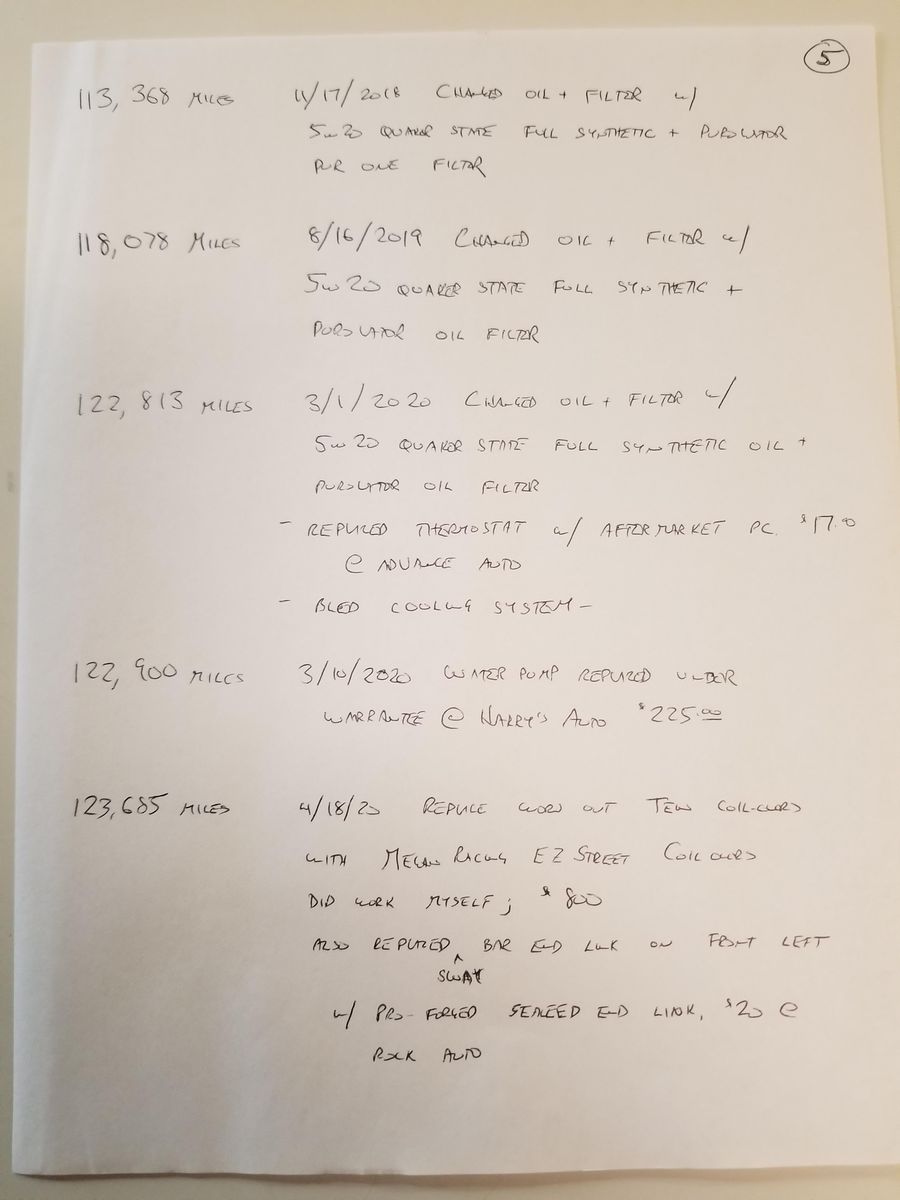 5
113,368 MILES 11/17/2018 CHANGED OIL + FILTER w/
5w20 QUAKER STATE FULL SYNTHETIC + PUROLATOR
PUR ONE FILTER
118,078 MILES 8/16/2019 CHANGED OIL + FILTER w/
5w20 QUAKER STATE FULL SYNTHETIC +
PUROLATOR OIL FILTER
122,813 MILES 3/1/2020 CHANGED OIL + FILTER w/
5w20 QUAKER STATE FULL SYNTHETIC OIL +
PUROLATOR OIL FILTER
- REPLACED THERMOSTAT w/ AFTERMARKET PC. $17.00
@ ADVANCE AUTO
- BLED COOLING SYSTEM -
122,900 MILES 3/10/2020 WATER PUMP REPLACED UNDER
WARRANTEE @ HARRY'S AUTO $225.00
123,685 MILES 4/18/20 REPLACE WORN OUT TEIN COIL-OVERS
WITH MEGAN RACING EZ STREET COIL OVERS
DID WORK MYSELF; $800
ALSO REPLACED ^ BAR END LINK ON FRONT LEFT
SWAY
w/ PRO-FORGED SEALED END LINK, $20 @
ROCK AUTO